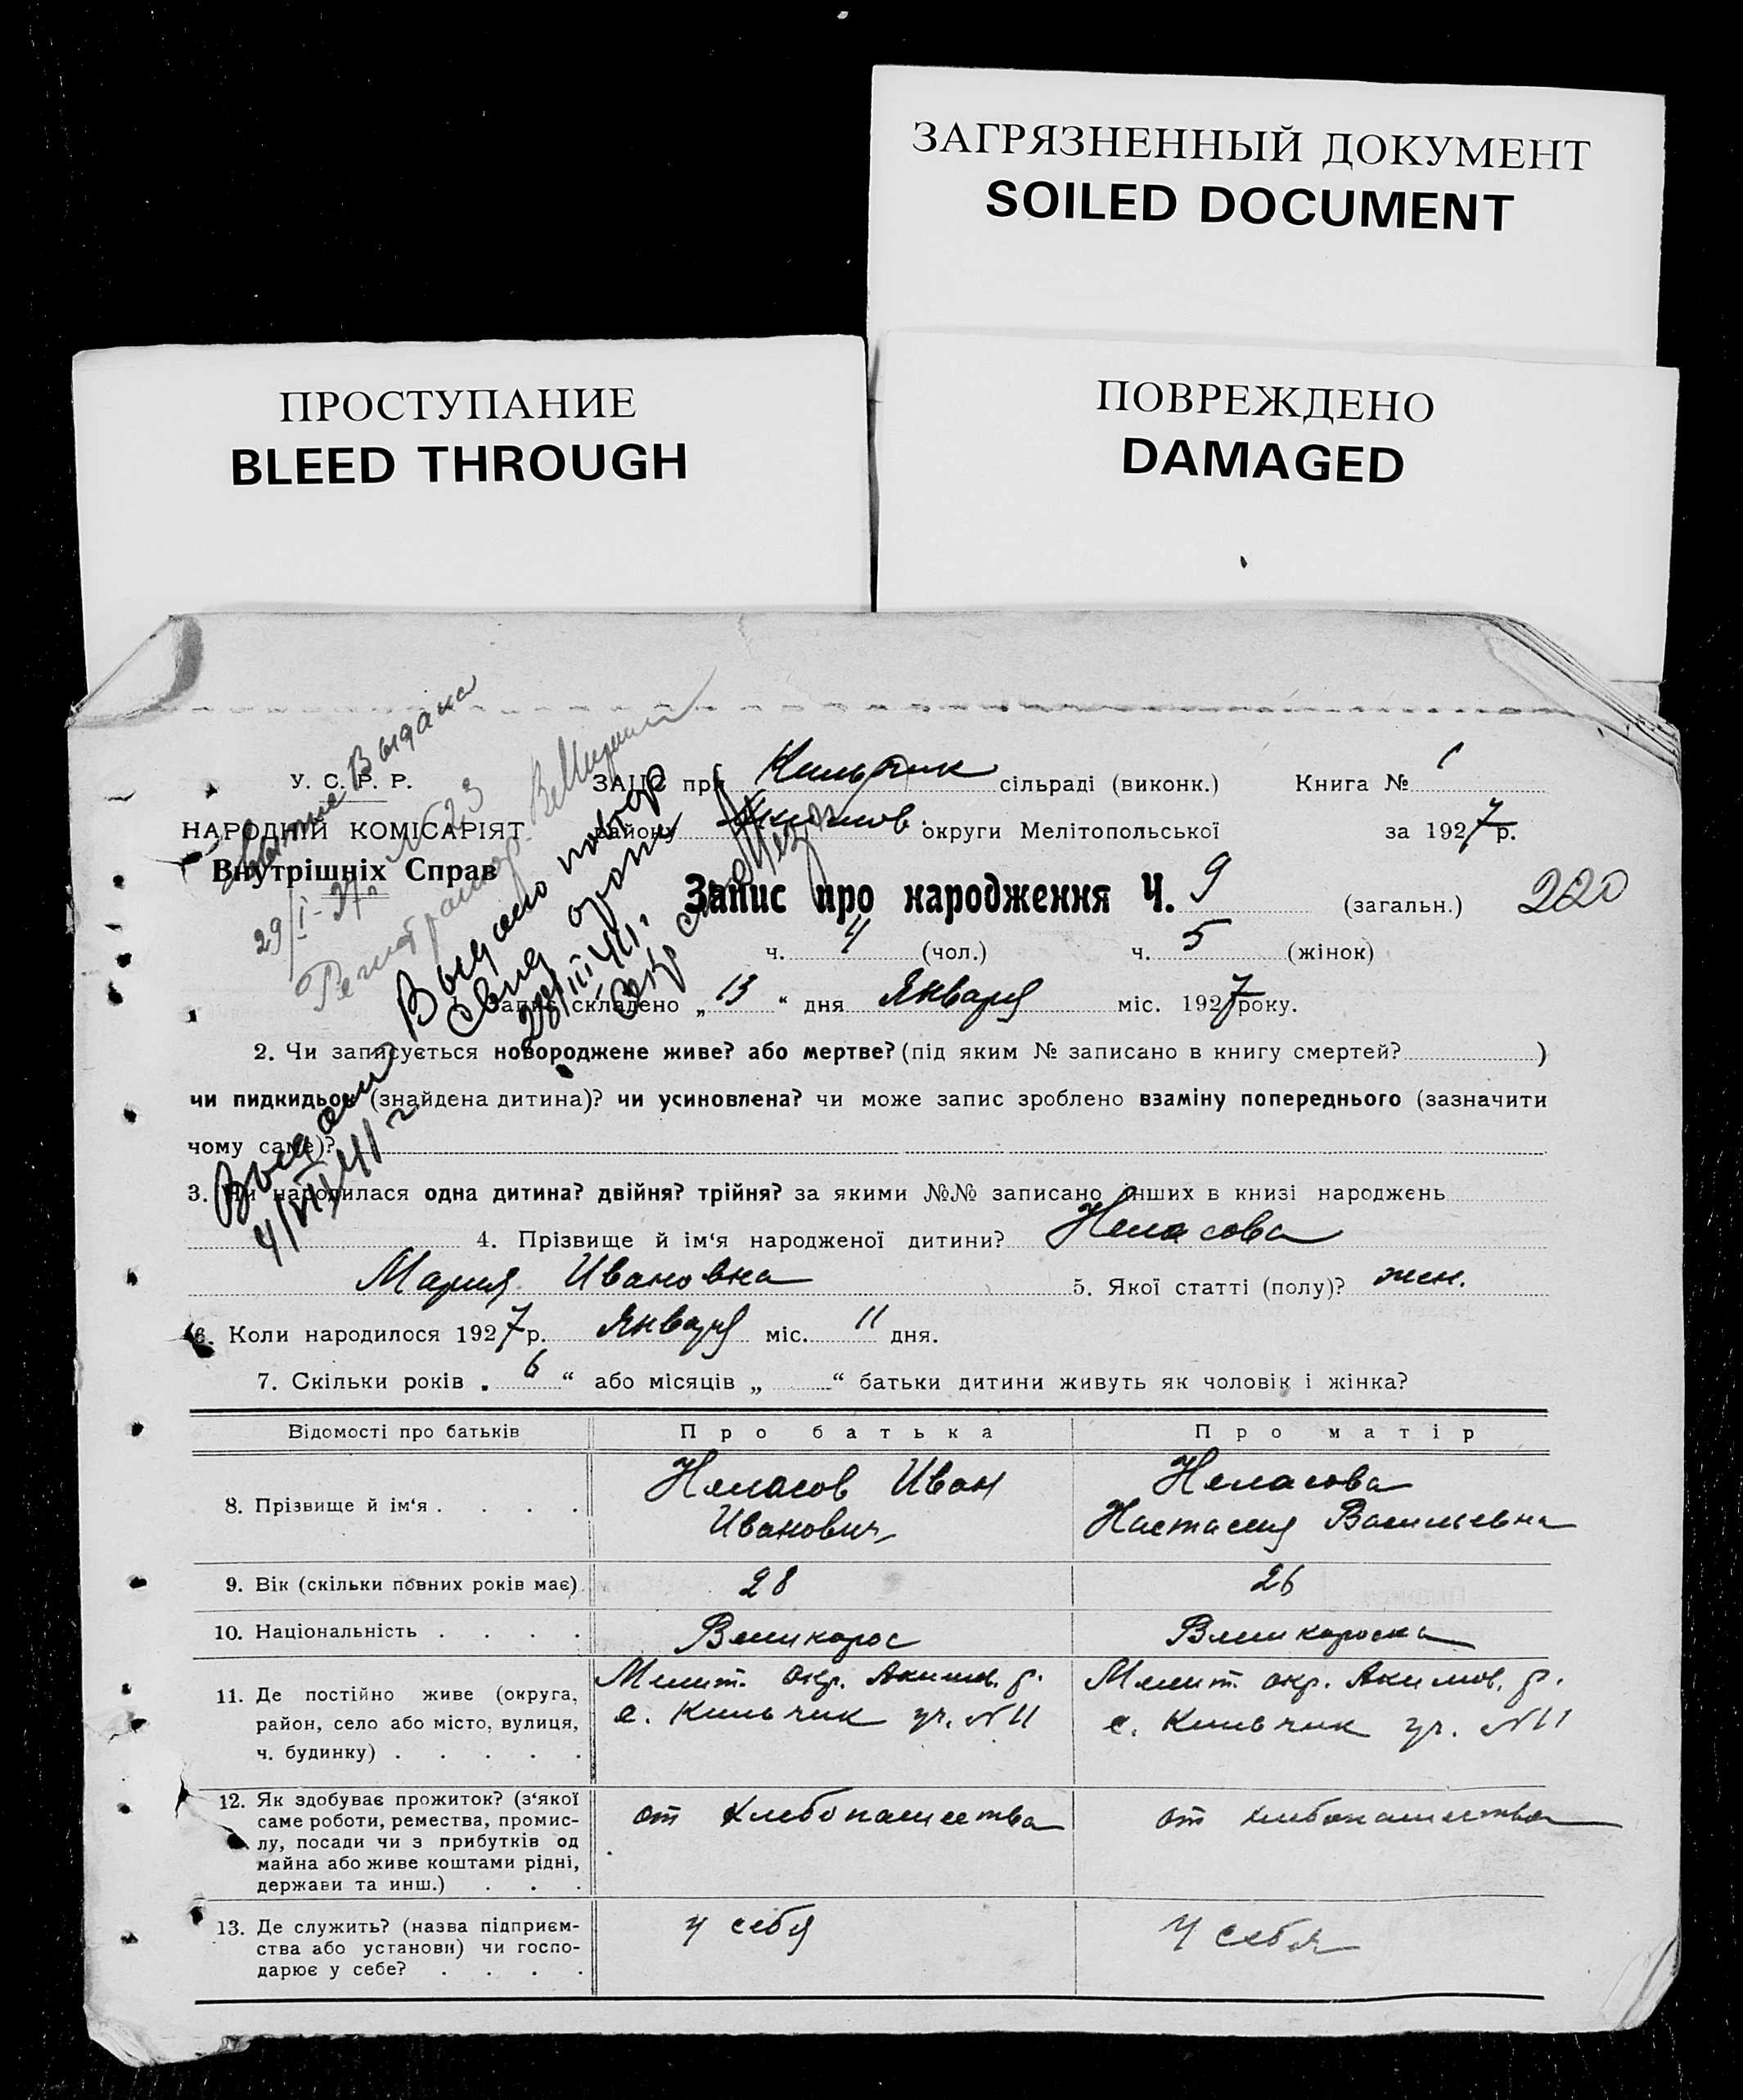 ЗАГРЯЗНЕННЫЙ ДОКУМЕНТ
SOILED DOCUMENT
ПРОСТУПАНИЕ
BLEED THROUGH
ПОВРЕЖДЕНО
DAMAGED
Выдана
№ 23
29/I-37.
Выдано повтор
28/III 41.
Выдано
4/VII 41 г
У. С. Р. Р.
НАРОДНІЙ КОМІСАРІЯТ
Внутрішніх Справ
ЗАЦС при Кильчик сільраді (виконк.) Книга № 1
району Акимов. округи Мелітопольської за 1927 р.
Запис про народження Ч. 9 (загальн.) 220
ч. 4 (чол.) ч. 5 (жінок)
1. Запис складено „ 13 “ дня Января міс. 1927 року.
2. Чи записується новороджене живе? або мертве? (під яким № записано в книгу смертей? )
чи пидкидьок (знайдена дитина)? чи усиновлена? чи може запис зроблено взаміну попереднього (зазначити
чому саме)?
3. Чи народилася одна дитина? двійня? трійня? за якими №№ записано інших в книзі народжень
4. Прізвище й ім‘я народженої дитини? Неласова
Мария Ивановна 5. Якої статті (полу)? жен.
6. Коли народилося 1927 р. Января міс. 11 дня.
7. Скільки років „ 6 “ або місяців „ “ батьки дитини живуть як чоловік і жінка?
Відомості про батьків Про батька Про матір
8. Прізвище й ім‘я . . . . Неласов Иван Иванович Неласова Настасия Васильевна
9. Вік (скільки повних років має) 28 26
10. Національність . . . . Великорос Великороска
11. Де постійно живе (округа,
район, село або місто, вулиця,
ч. будинку) . . . . .
Мелит. окр. Акимов. р.
с. Кильчик уч. № 11
Мелит. окр. Акимов. р.
с. Кильчик уч. № 11
12. Як здобуває прожиток? (з‘якої
саме роботи, ремества, промис-
лу, посади чи з прибутків од
майна або живе коштами рідні,
держави та инш.) . . .
от хлебопашества
от хлебопашества
13. Де служить? (назва підприєм-
ства або установи) чи госпо-
дарює у себе? . . . .
у себя
у себя